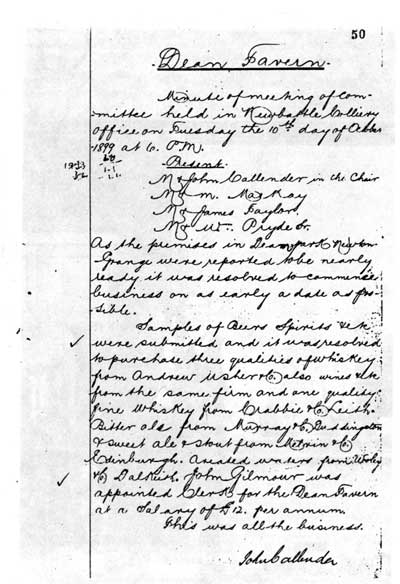 50
Dean Tavern.
Minute of meeting of Com-
-mittee held in Newbattle Colliery
Office on Tuesday the 10th day of Octber
1899 at 6. P.M.
Present.
Mr John Callender in the Chair
Mr Wm. MacKay
Mr James Taylor.
Mr Wm. Pryde Sr.
As the premises in Deanpark Newton-
Grange were reported to be nearly
ready it was resolved to commence
business on as early a date as pos-
-sible.
Samples of Beers Spirits &c &c
were submitted and it was resolved
to purchase three qualities of whiskey
from Andrew Usher & Co. also wines &c
from the same firm and one quality
fine Whiskey from Crabbie & Co Leith.
Bitter ale from Murray & Co Duddingston
& sweet ale & stout from & Co
Edinburgh. Aerated waters from
& Co Dalkeith. John Gilmour was
appointed Clerk for the Dean Tavern
at a Salary of £12. per annum.
This was all the business.
John Callender